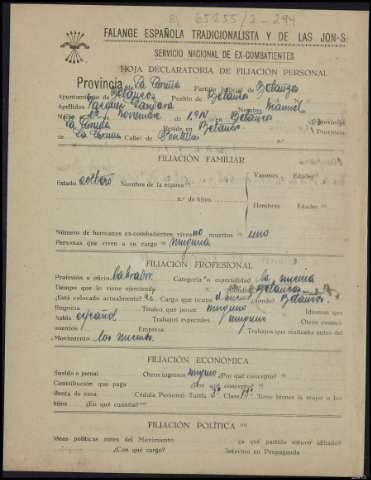 65255/2-294
FALANGE ESPAÑOLA TRADICIONALISTA Y DE LAS JON-S
SERVICIO NACIONAL DE EX-COMBATIENTES
HOJA DECLARATORIA DE FILIACIÓN PERSONAL
Provincia de La Coruña Partido Judicial de Betanzos
Ayuntamiento de Betanzos Pueblo de Betanzos
Apellidos Nombre Manuel
Noviembre de Betanzos
La Coruña Reside en Betanzos Provincia
La Coruña Calle: de
FILIACIÓN FAMILIAR
Estado soltero Nombres de la esposa Varones Edades
n.º de hijos
Hembras Edades
Número de hermanos ex-combatientes vivos no muertos uno
Personas que viven a su cargo ninguna
FILIACIÓN PROFESIONAL
Profesión u oficio labrador Categoría o especialidad la misma
Tiempo que lo viene ejerciendo Betanzos
¿Está colocado actualmente? Cargo que ocupa el mismo Betanzos
Empresa Títulos que posee ninguno Idiomas que
habla español Trabajos especiales ninguno Otros conoci-
mientos Empresa Trabajos que realizaba antes del
Movimiento los mismos
FILIACIÓN ECONÓMICA
Sueldo o jornal Otros ingresos ninguno ¿Por qué concepto?
Contribución que paga ¿por qué concepto?
Renta de casa Cédula Personal: Tarifa Clase Tiene bienes la mujer o los
hijos ¿En qué cuantía?
FILIACIÓN POLÍTICA
Ideas políticas antes del Movimiento ¿a qué partido estuvo afiliado?
¿Con qué cargo? Intervino en Propaganda